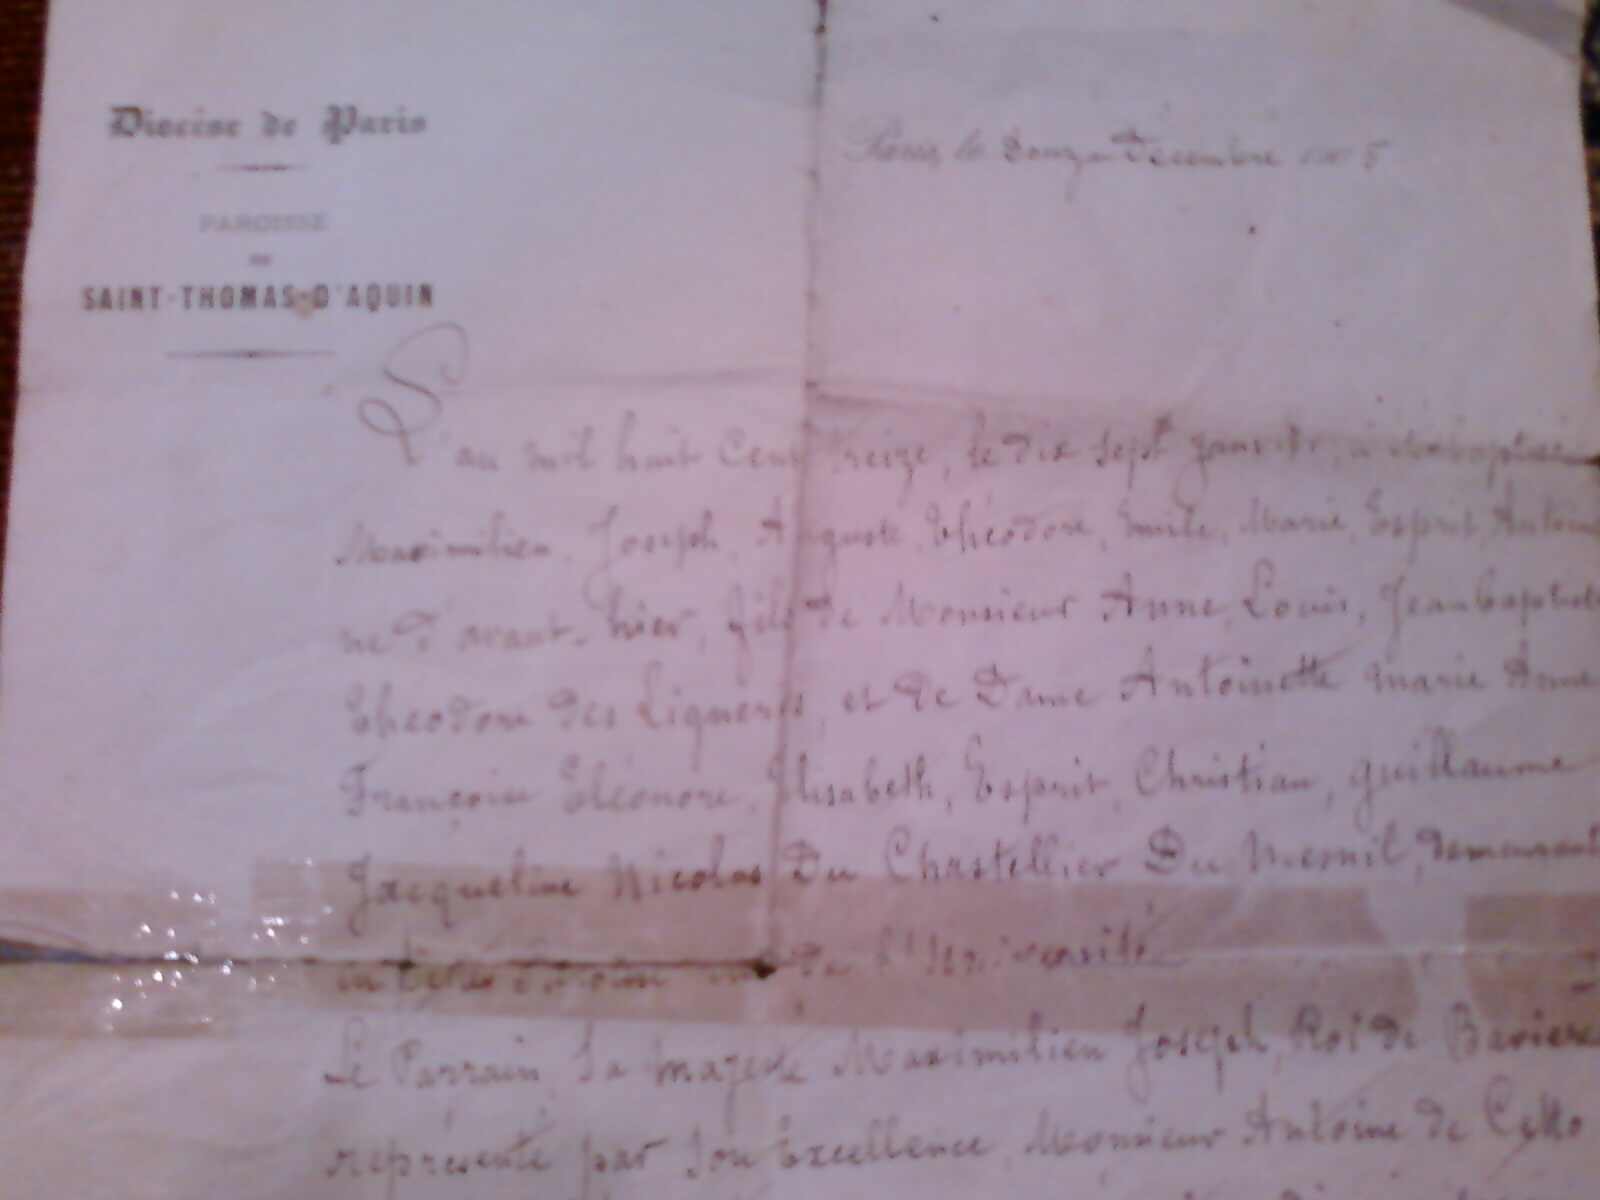 Diocèse de Paris
PAROISSE
DE
SAINT-THOMAS-D'AQUIN
Paris, le Douze Décembre 1905
L'an mil huit cent treize, le dix sept Janvier, a été baptisé
Maximilien, Joseph, Auguste, Théodore, Emile, Marie, Esprit, Antoine
né d'avant-hier, fils de Monsieur Anne, Louis, Jean baptiste
Théodore des Ligneris, et de Dame Antoinette Marie Anne
Françoise Eléonore, Elisabeth, Esprit, Christian, Guillaume
Jacqueline Nicolas Du Chastellier Du Mesnil, demeurant
de l'Université
Le Parrain, Sa Majesté Maximilien Joseph, Roi de Bavière
représenté par Son Excellence, Monsieur Antoine de Cetto